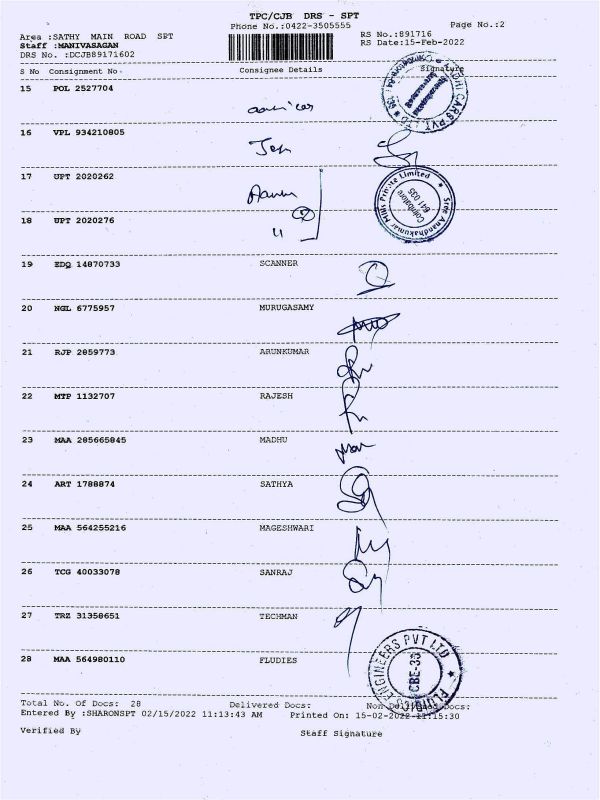 TPC/CJB DRS - SPT
Phone No.:0422-3505555
Page No.:2
Area :SATHY MAIN ROAD SPT
RS No.:891716
Staff :MANIVASAGAN
RS Date:15-Feb-2022
DRS No. :DCJB89171602
S No Consignment No. Consignee Details Signature
15 POL 2527704
16 VPL 934210805
17 UPT 2020262
Sree Anandhakumar Mills Private Limited
Coimbatore
641 035
18 UPT 2020276
19 EDQ 14870733 SCANNER
20 NGL 6775957 MURUGASAMY
21 RJP 2859773 ARUNKUMAR
22 MTP 1132707 RAJESH
23 MAA 285665845 MADHU
24 ART 1788874 SATHYA
25 MAA 564255216 MAGESHWARI
26 TCG 40033078 SANRAJ
27 TRZ 31358651 TECHMAN
28 MAA 564980110 FLUDIES
ENGINEERS PVT LTD
Total No. Of Docs: 28 Delivered Docs: Non Delivered Docs:
Entered By :SHARONSPT 02/15/2022 11:13:43 AM Printed On: 15-02-2022 11:15:30
Verified By Staff Signature